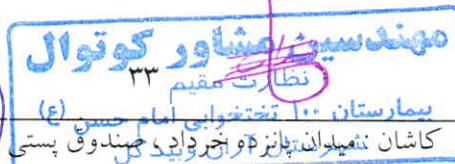 مهندسین مشاور کوتوال
نظارت مقیم
۳۳
بیمارستان ۱۰۰ تختخوابی امام حسن (ع)
کاشان : میدان پانزده خرداد ، صندوق پستی